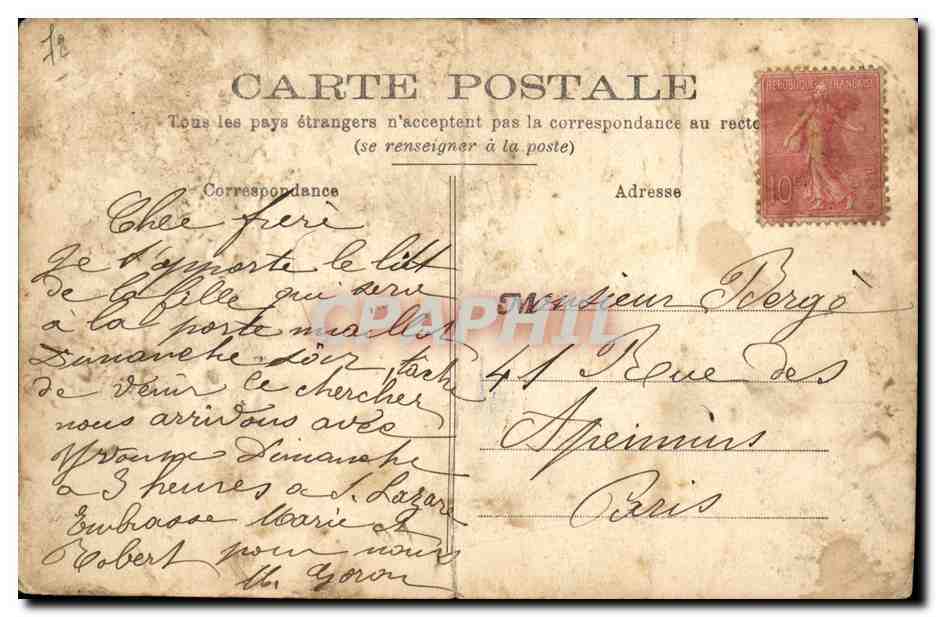 72
CARTE POSTALE
Tous les pays étrangers n'acceptent pas la correspondance au recto
(se renseigner à la poste)
REPUBLIQUE FRANÇAISE
10c
Correspondance
Chee freri
Je t'apporte le litt
de la fille qui sera
à la porte maillot
Dimanche soir, tache
de venir le chercher
nous arrivons avec
Yvonne Dimanche
a 3 heures a S. Lazare
Embrasse Marie et
Robert pour nous
M. Goron
Adresse
Monsieur Bergé
41 Rue des
Apeinnins
Paris
CPAPHIL